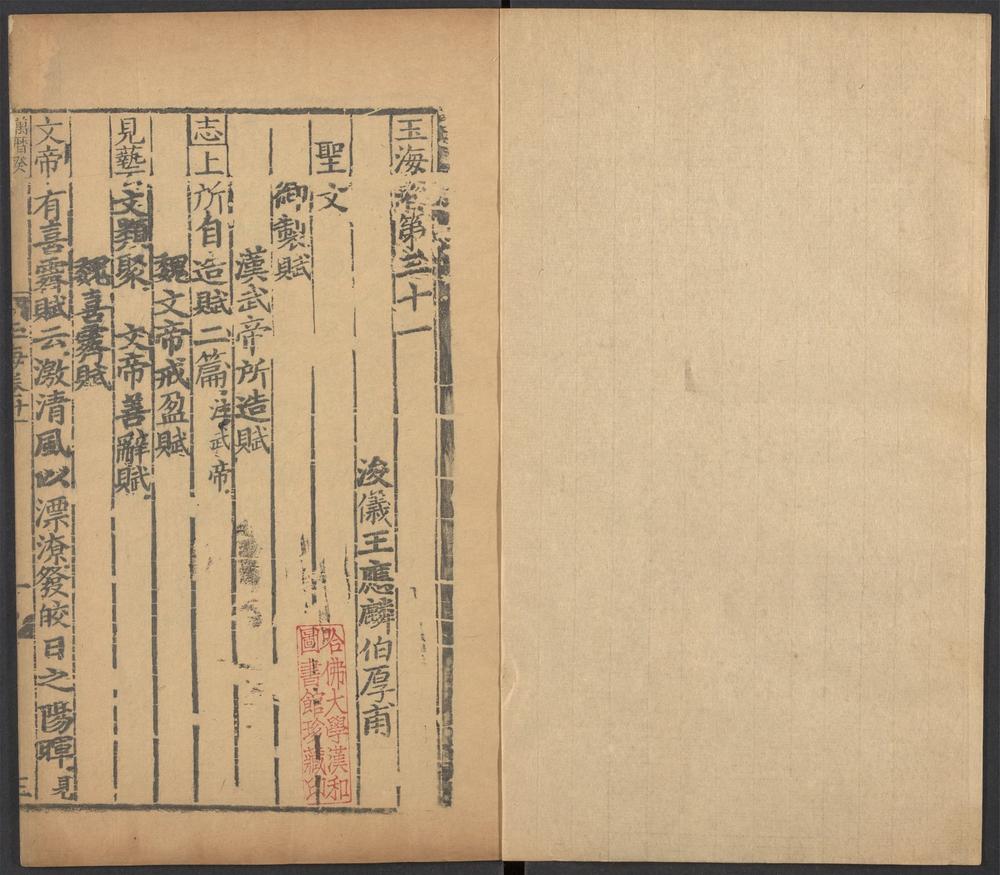 玉海卷第三十一
浚儀王應麟伯厚甫
聖文
御製賦
漢武帝所造賦
志上所自造賦二篇注武帝
魏文帝戒盈賦
見藝文類聚 文帝善辭賦
魏喜霽賦
文帝有喜霽賦云激清風以漂潦發皎日之陽暉見
萬曆癸
哈佛大學漢和
圖書館珍藏印